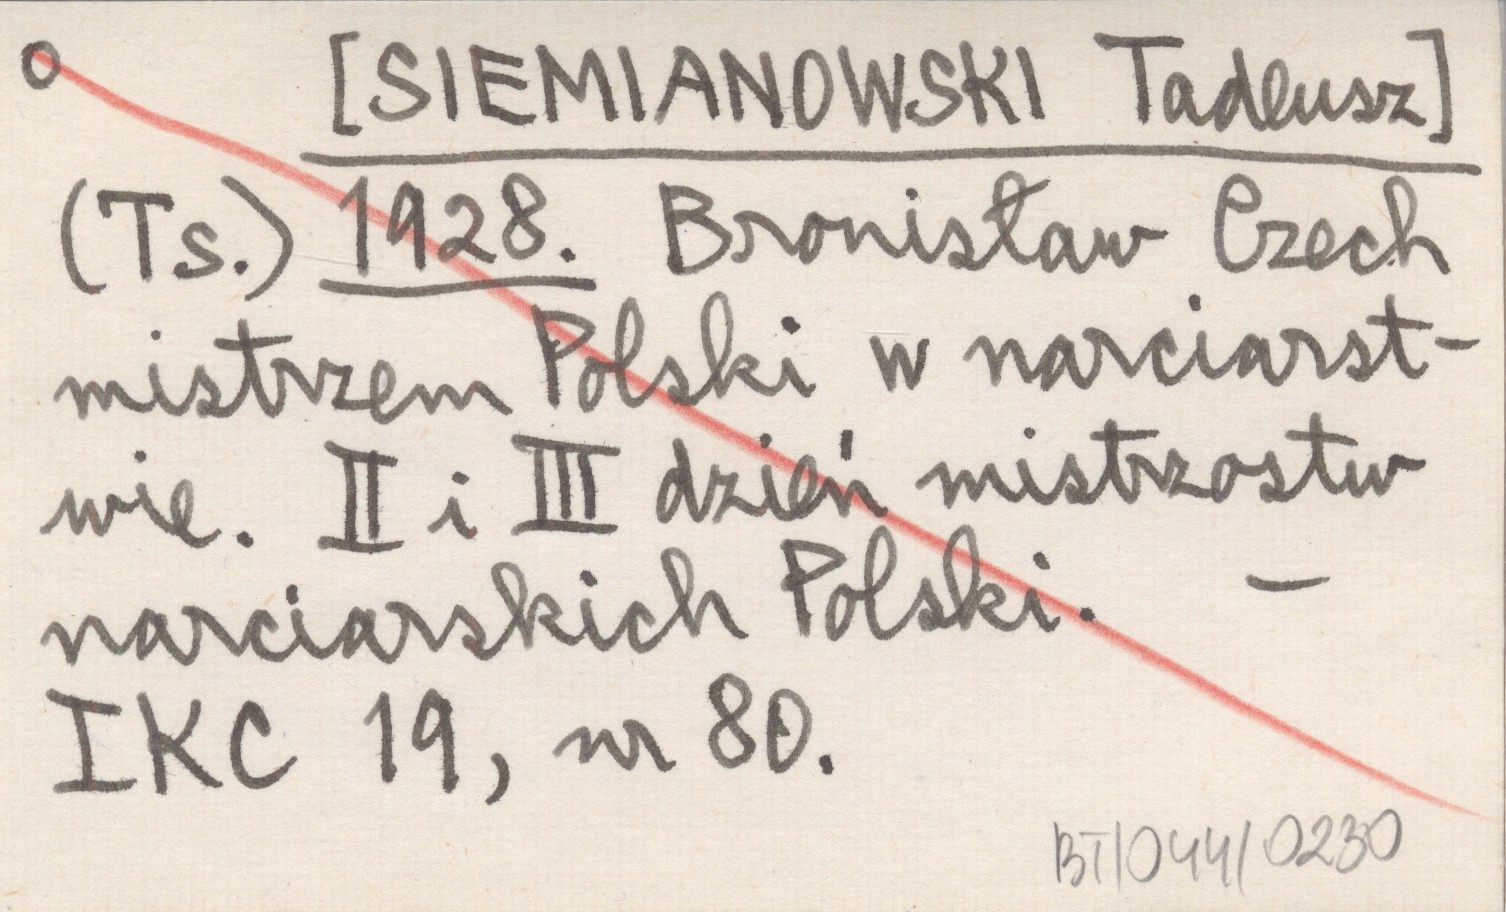 o [SIEMIANOWSKI Tadeusz]
(Ts.) 1928. Bronisław Czech
mistrzem Polski w narciarst-
wie. II i III dzień mistrzostw
narciarskich Polski. —
IKC 19, nr 80.
BT/044/0230